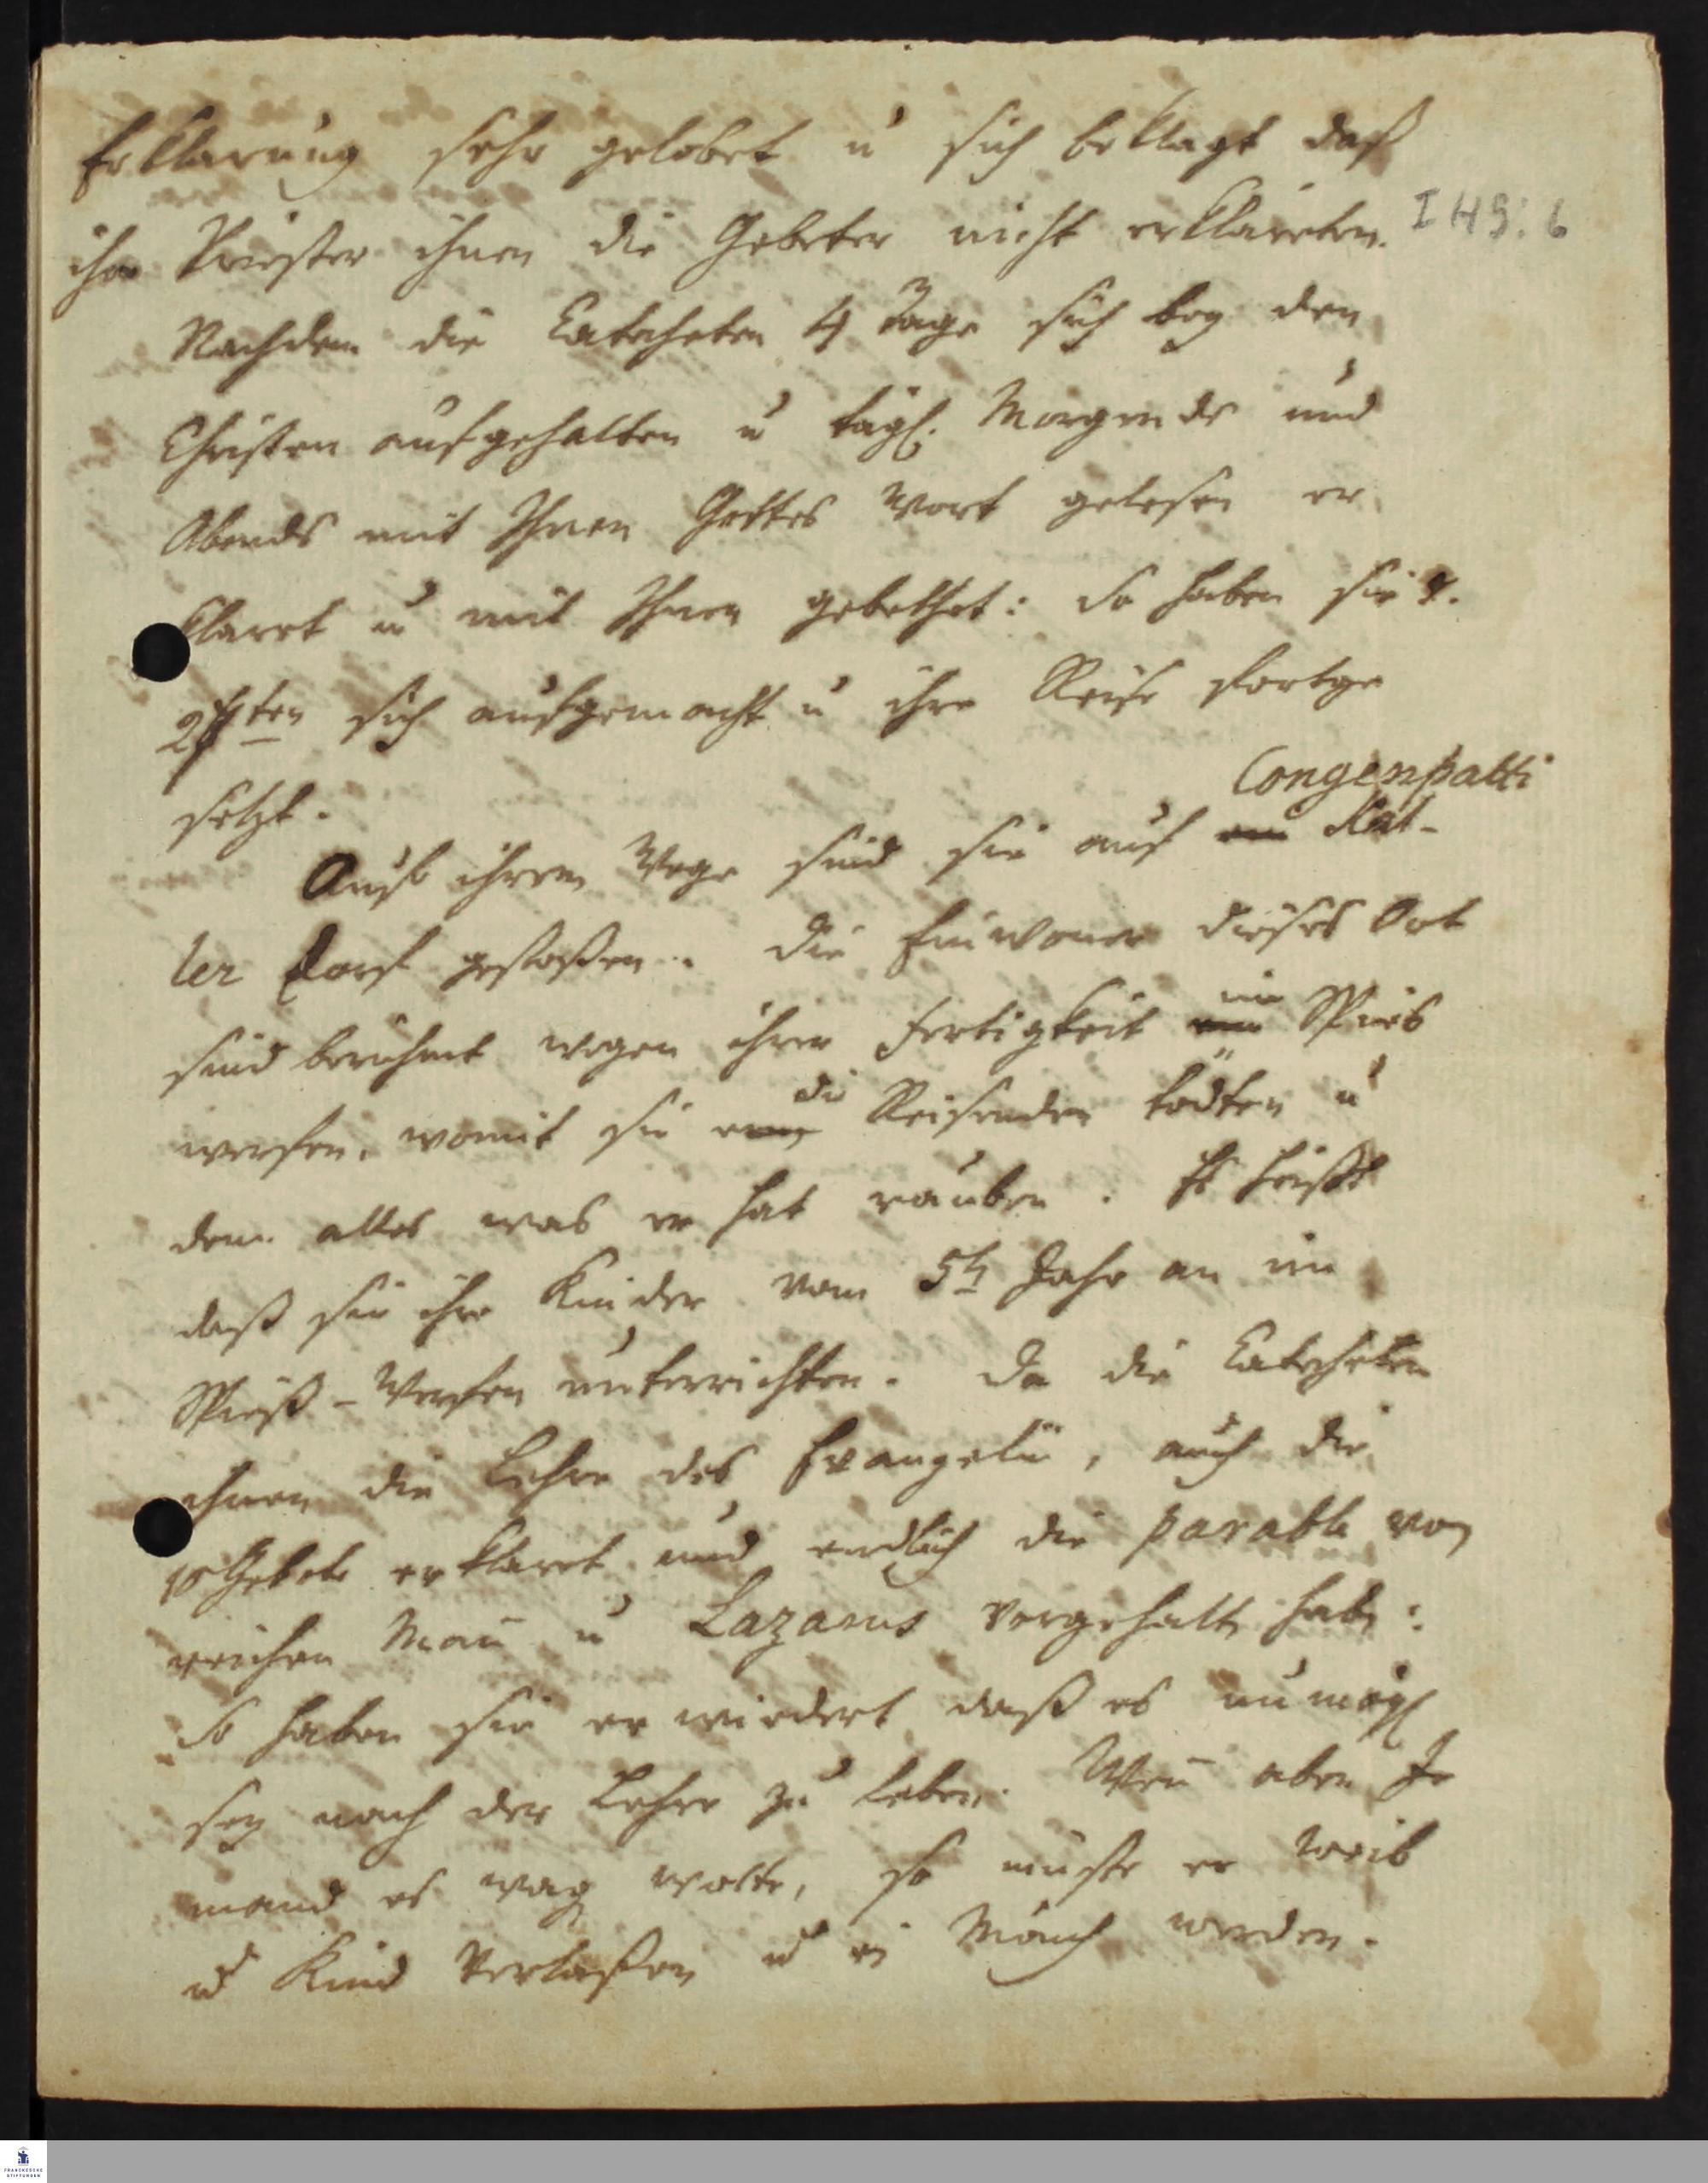 Erklarung sehr gelobet u sich beklagt daß
ihre Priester ihnen die Gebeter nicht erklareten.
I H9: 6
Nachdem die Catecheten 4 Tage sich bey den
Christen aufgehalten u tägl. Morgends und
Abends mit Ihnen Gottes Wort gelesen er
klaret u mit Ihnen gebethet: So haben sie d.
ten sich aufgemacht u ihre Reise fortge
setzt.
Congenpatti
Auf ihrem Wege sind sie auf ein Kal-
ler Dorf gestoßen. Die Einwoner dieses Ort
sind berühmt wegen ihrer Fertigkeit im Spies
werfen. womit sie die Reisenden tödten u
dem alles was er hat rauben. Es heißt
daß sie ihre Kinder vom 5t Jahr an im
Spieß-Werfen unterrichten. Da die Catecheten
ihnen die Lehre des Evangelii, auch die
10 Gebote erklaret und endlich die parabel von
reichen Man u Lazarus vorgehalten haben:
So haben sie erwiedert daß es unmögl
sey nach der Lehre zu leben. Wen aber Je
mand es wagen wolte, so müste er Weib
u Kind Verlaßen u ein Mönch werden.
FRANCKESCHE
STIFTUNGEN